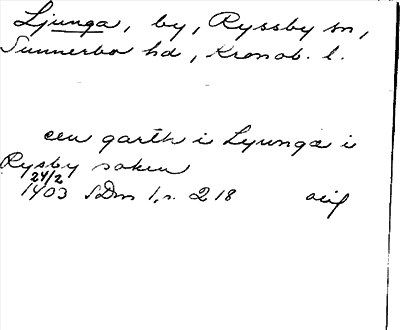 Ljunga, by, Ryssby sn,
Sunnerbo hd, Kronob. l.
een garth i Lyunga i
Rysby soken
24/2
1403 SDns 1, s. 218 orig